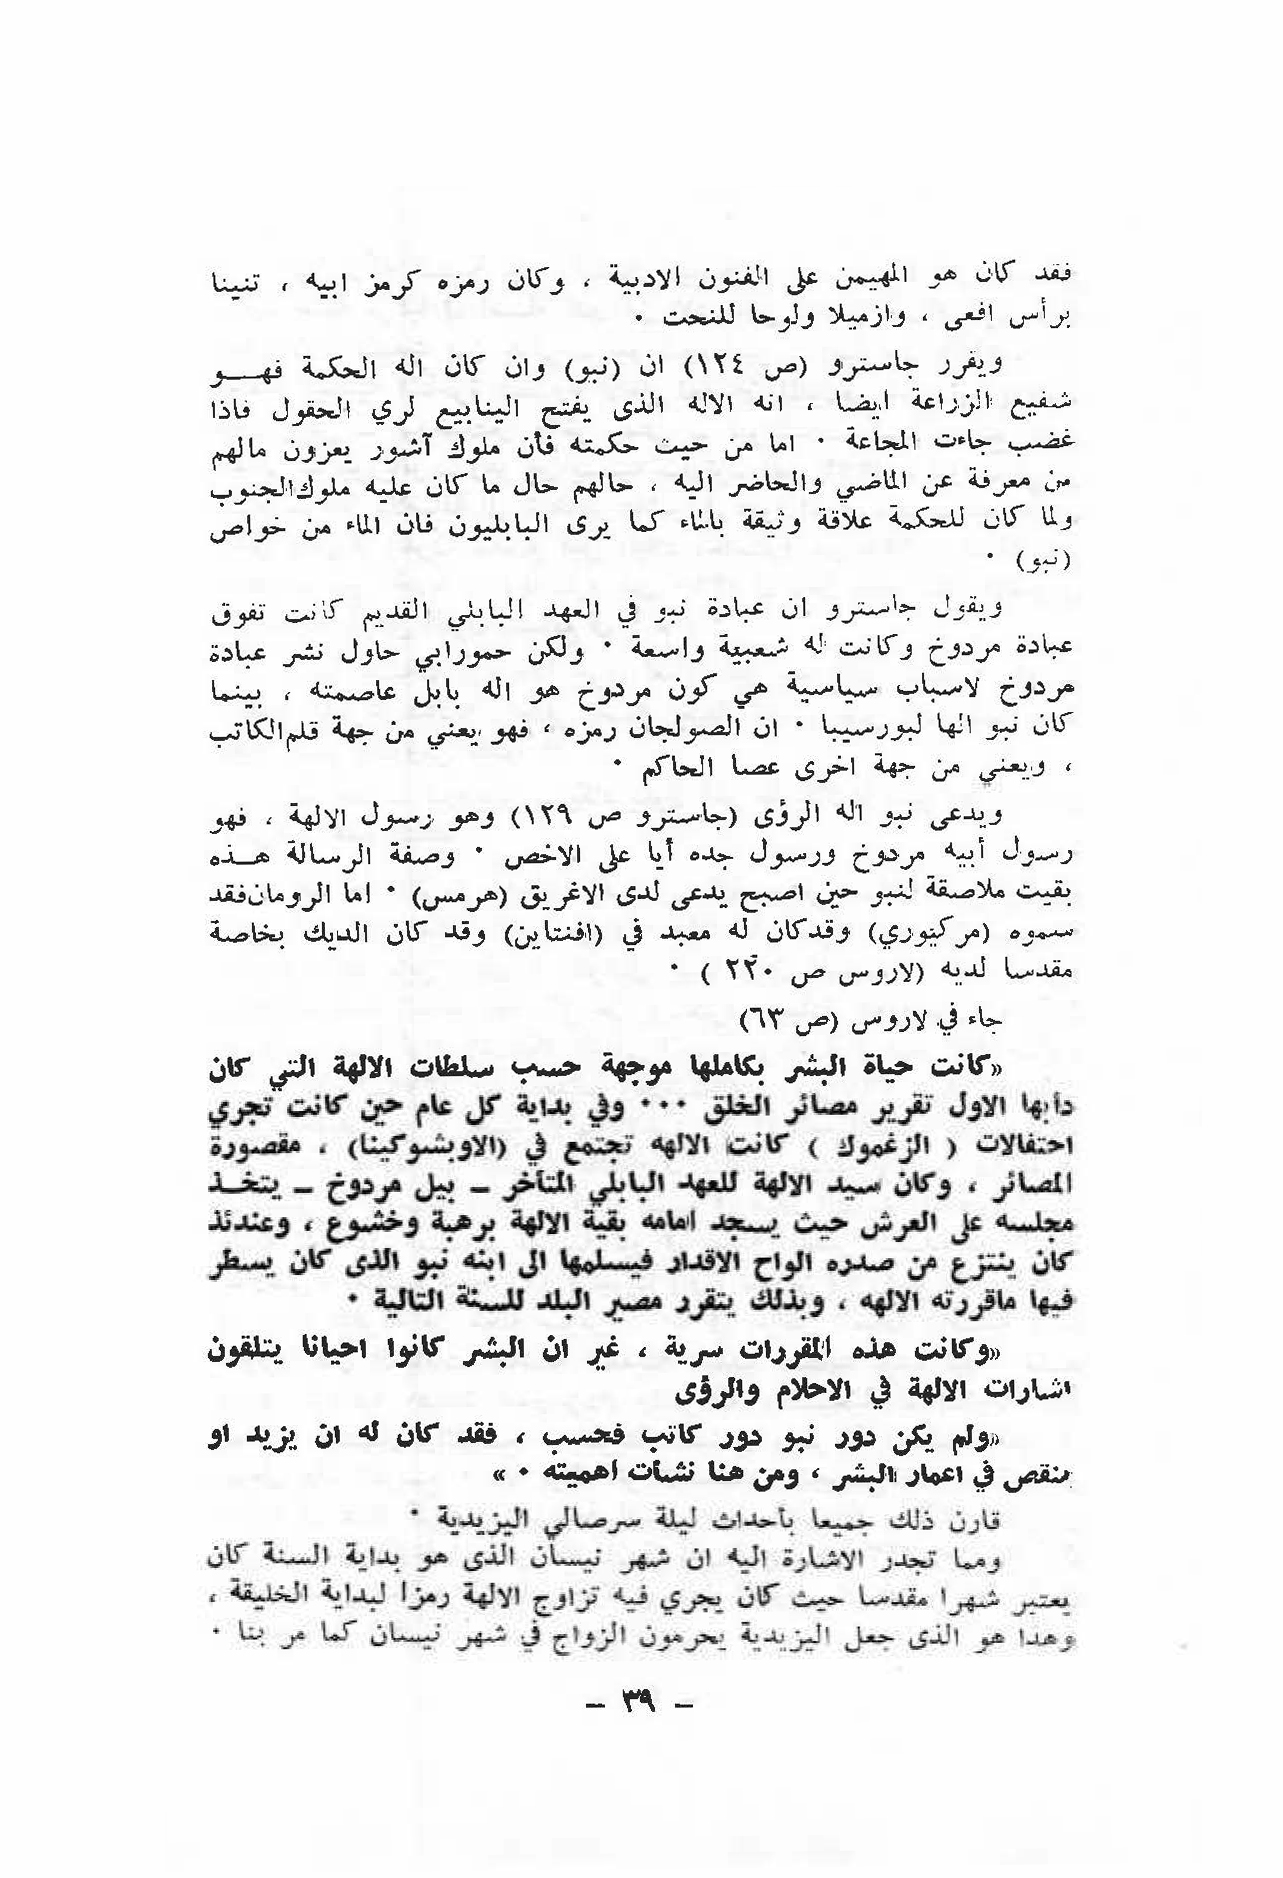 فقد كان هو المهيمن على الفنون الادبية ، وكان رمزه كرمز ابيه ، تنينا
برأس افعى ، وازميلا ولوحا للنحت ٠
ويقرر جاسترو (ص ١٢٤) ان (نبو) وان كان اله الحكمة فهـــو
شفيع الزراعة ايضا ، انه الاله الذى يفتح الينابيع لري الحقول فاذا
غضب جاءت المجاعة ٠ اما من حيث حكمته فأن ملوك آشور يعزون مالهم
من معرفة عن الماضي والحاضر اليه ، حالهم حال ما كان عليه ملوك الجنوب
ولما كان للحكمة علاقة وثيقة بالماء كما يرى البابليون فان الماء من خواص
(نبو) ٠
ويقول جاسترو ان عبادة نبو في العهد البابلي القديم كانت تفوق
عبادة مردوخ وكانت له شعبية واسعة ٠ ولكن حمورابي حاول نشر عبادة
مردوخ لاسباب سياسية هي كون مردوخ هو اله بابل عاصمته ، بينما
كان نبو الها لبورسيبا ٠ ان الصولجان رمزه ، فهو يعني من جهة قلم الكاتب
، ويعني من جهة اخرى عصا الحاكم ٠
ويدعى نبو اله الرؤى (جاسترو ص ١٢٩) وهو رسول الالهة ، فهو
رسول أبيه مردوخ ورسول جده أيا على الاخص ٠ وصفة الرسالة هـــذه
بقيت ملاصقة لنبو حين اصبح يدعى لدى الاغريق (هرمس) ٠ اما الرومان فقد
سموه (مركيوري) وقد كان له معبد في (افنتاين) وقد كان الديك بخاصة
مقدسا لديه (لاروس ص ٢٢٠ ) ٠
جاء في لاروس (ص ٦٣)
«كانت حياة البشر بكاملها موجهة حسب سلطات الالهة التي كان
دابها الاول تقرير مصائر الخلق ٠٠٠ وفي بداية كل عام حين كانت تجري
احتفالات ( الزغموك ) كانت الالهه تجتمع في (الاوبشوكينا) ، مقصورة
المصائر ، وكان سيد الالهة للعهد البابلي المتأخر ـ بيل مردوخ ـ يتخـذ
مجلسه على العرش حيث يسجد امامه بقية الالهة برهبة وخشوع ، وعندئذ
كان ينتزع من صدره الواح الاقدار فيسلمها الى ابنه نبو الذى كان يسطر
فيها ماقررته الالهه ، وبذلك يتقرر مصير البلد للسنة التالية ٠
«وكانت هذه المقررات سرية ، غير ان البشر كانوا احيانا يتلقون
اشارات الالهة في الاحلام والرؤى
«ولم يكن دور نبو دور كاتب فحسب ، فقد كان له ان يزيد او
ينقص في اعمار البشر ، ومن هنا نشأت اهميته ٠ »
قارن ذلك جميعا بأحداث ليلة سرصالي اليزيدية ٠
ومما تجدر الاشارة اليه ان شهر نيسان الذى هو بداية السنة كان
يعتبر شهرا مقدسا حيث كان يجري فيه تزاوج الالهة رمزا لبداية الخليقة ،
وهذا هو الذى جعل اليزيدية يحرمون الزواج في شهر نيسان كما مر بنا ٠
– ٣٩ –